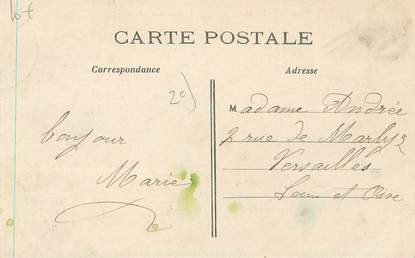 Lot
CARTE POSTALE
Correspondance
Adresse
20)
Madame Andrée
2 rue de Marly 2
Versailles
Seine et Oise
bonjour
Marie